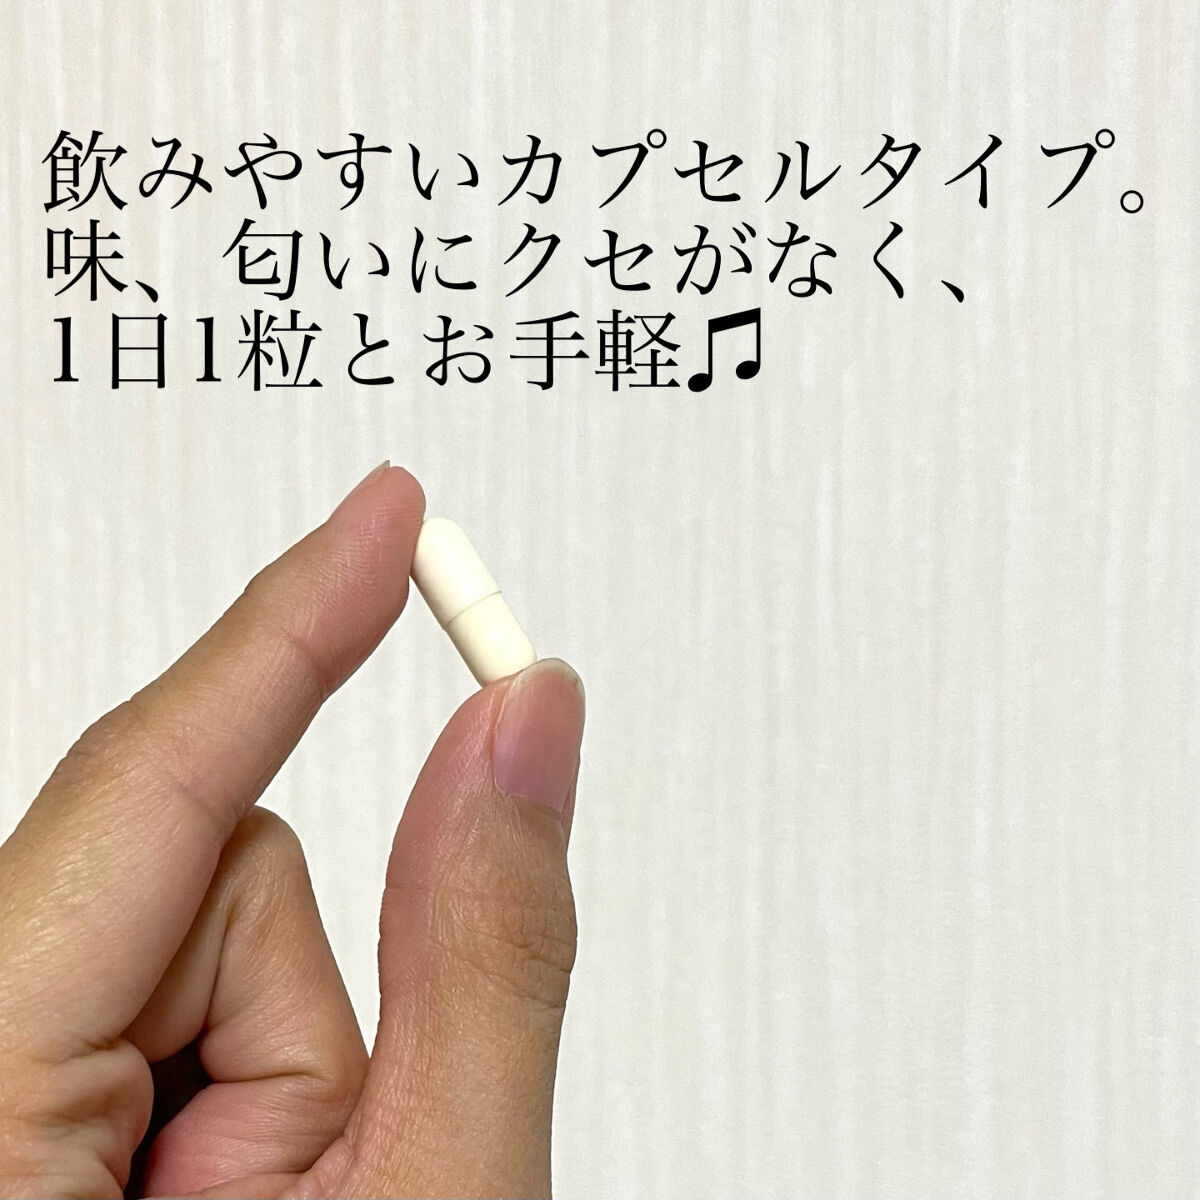 飲みやすいカプセルタイプ。
味、匂いにクセがなく、
1日1粒とお手軽♫